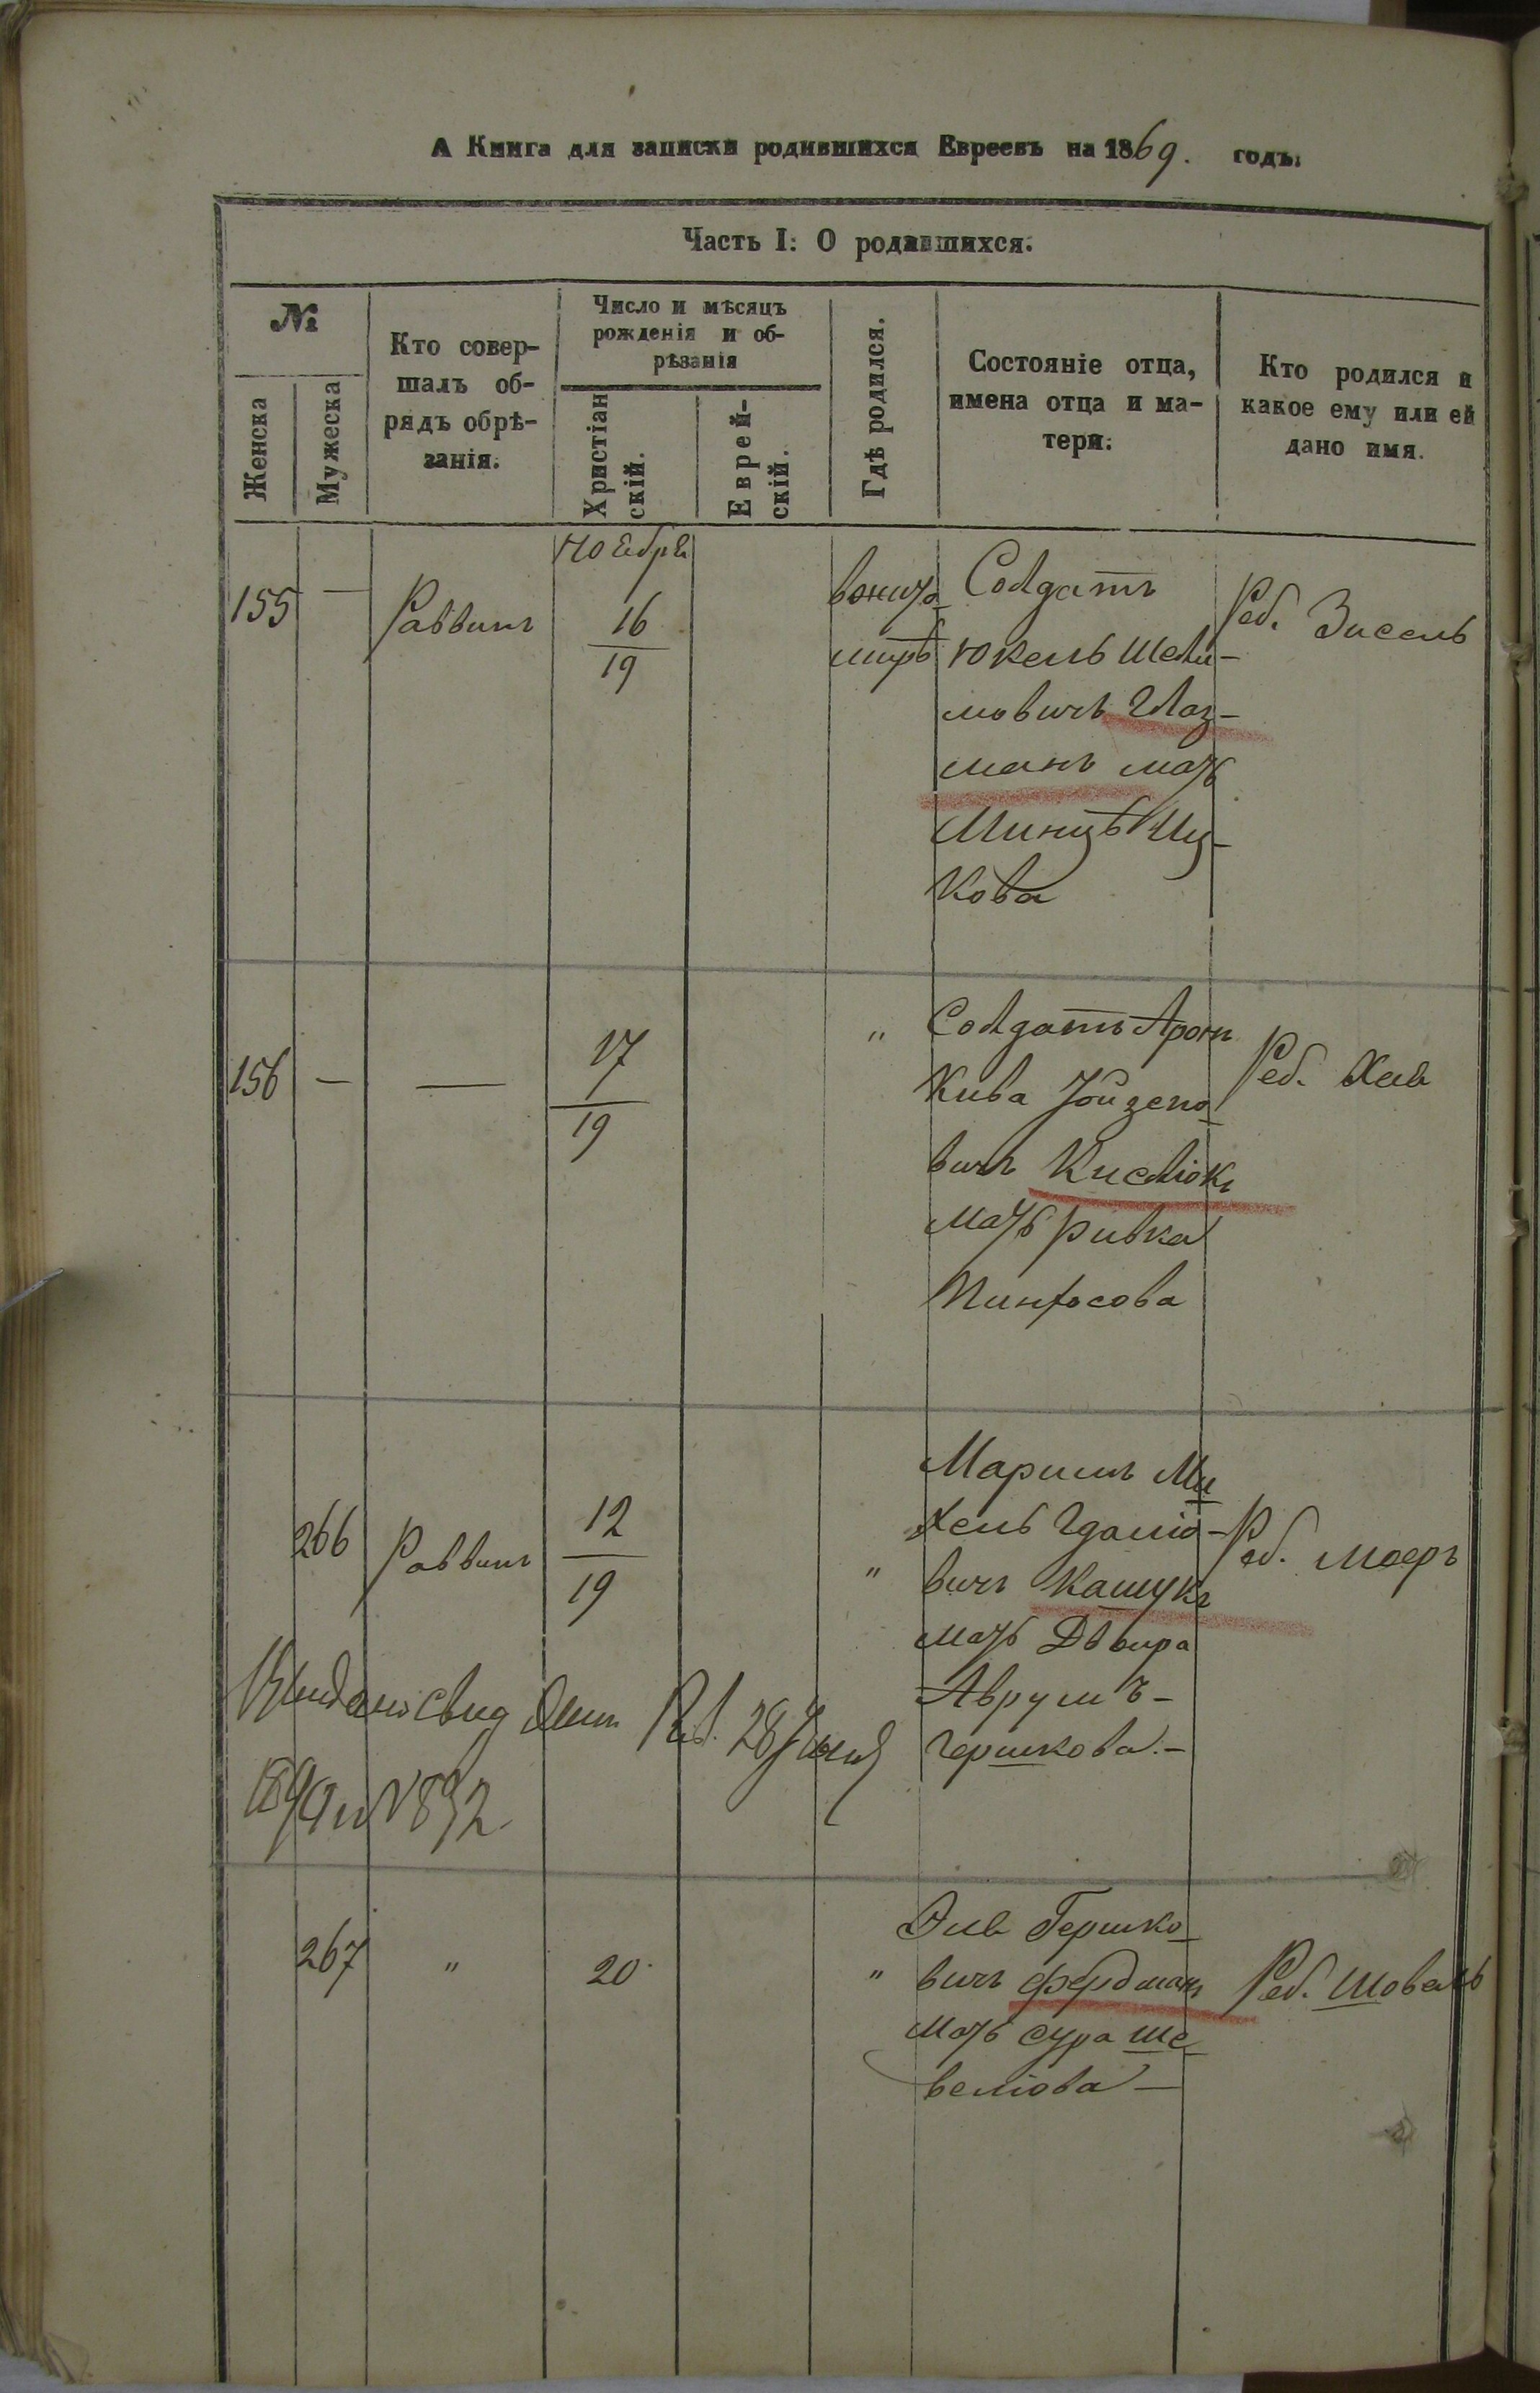 А Книга для записки родившихся Евреевъ на 1869. годъ.
Часть I: О родившихся.
№
Женска
Мужеска
Кто совер-
шалъ об-
рядъ обрѣ-
занія.
Число и мѣсяцъ
рожденія и об-
рѣзанія
Христіан
скій.
Еврей-
скій.
Гдѣ родился.
Состояніе отца,
имена отца и ма-
тери.
Кто родился и
какое ему или ей
дано имя.
Ноября
155
—
Раввинъ
16
19
Солдатъ
Юкель Шели-
мовичъ Глаз-
манъ мать
Минцѣ Иц-
кова
Реб. Зисель
156
—
—
17
19
"
Солдатъ Аронъ
Кива Йойзепо-
вичъ Кислюкъ
мать Ривка
Пинфосова
Реб. Хая
266
Раввинъ
12
19
"
Маримъ Ми-
хель Гдалiо-
вичъ Кашукъ
мать Двойра
Аврумъ-
Гершкова.—
Реб. Моеръ
28 Іюня
1892
267
"
20
"
Эля Гершко-
вичъ Фердманъ
мать Сура Ше-
веліова —
Реб. Шовель